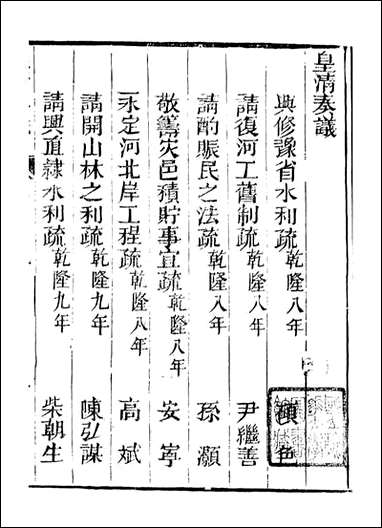 皇清奏議
興修豫省水利疏乾隆八年 碩色
請復河工舊制疏乾隆八年 尹繼善
請酌賑民之法疏乾隆八年 孫灝
敬籌灾邑積貯事宜疏乾隆八年 安寧
永定河北岸工程疏乾隆八年 高斌
請開山林之利疏乾隆九年 陳弘謀
請興直隸水利疏乾隆九年 柴朝生